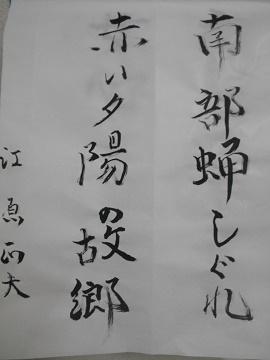 南部蝉しぐれ
赤い夕陽の故郷
江原正夫